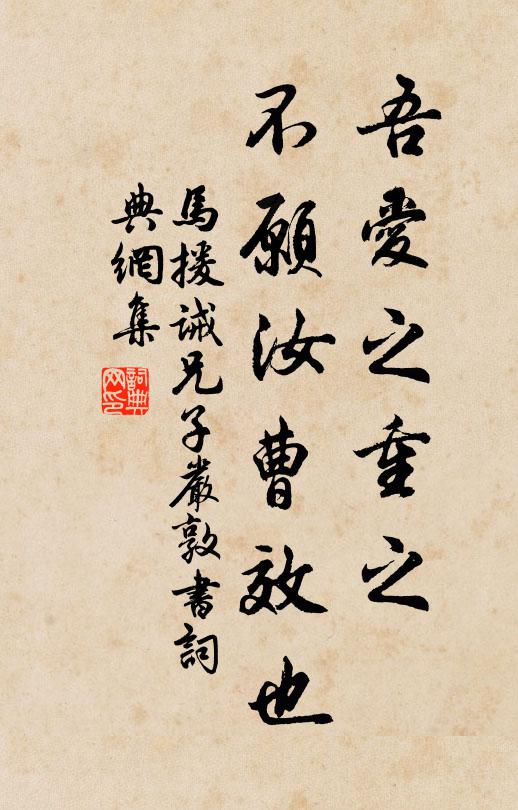 吾愛之重之
不願汝曹效也
馬援誡兄子嚴敦書詞
典網集
詞典
网印